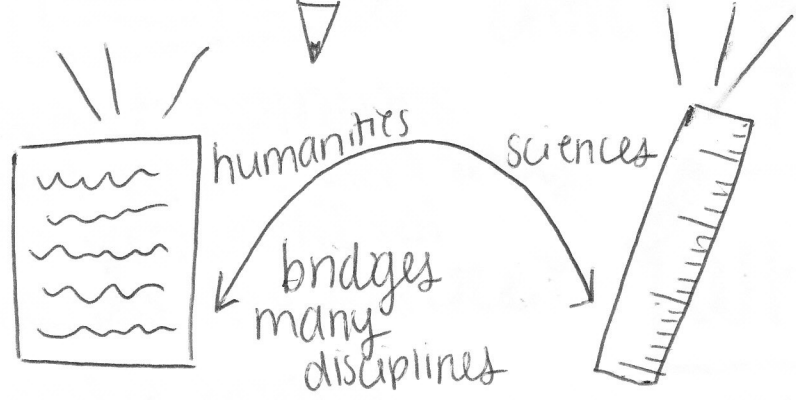 humanities
sciences
bridges
many
disciplines